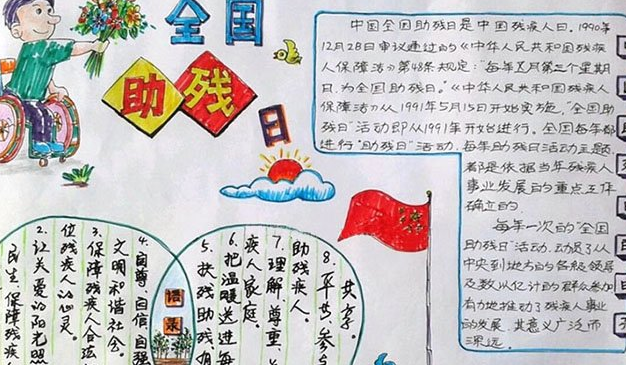 全国
助残
日
中国全国助残日是中国残疾人日。1990年
12月28日审议通过的《中华人民共和国残疾
人保障法》第48条规定:“每年五月第三个星期
日,为全国助残日。”《中华人民共和国残疾人
保障法》从1991年5月15日开始实施,“全国助
残日”活动即从1991年开始进行。全国每年都
进行“助残日”活动,每年助残日活动主题,
都是依据当年残疾人
事业发展的重点工作
确立的
每年一次的“全国
助残日”活动,动员了从
中央到地方的各级领导
及数以亿计的群众参加
有力地推动了残疾人事业
的发展,其意义广泛而
深远。
语录
8.平等·参与
共享。
7.理解、尊重、
助残疾人。
6.把温暖送进每
疾人家庭。
5.扶残助残,
4.自尊、自信、自强
文明和谐社会。
3.保障残疾人合法
位残疾人的心灵。
2.让关爱的阳光照
民生,保障残疾